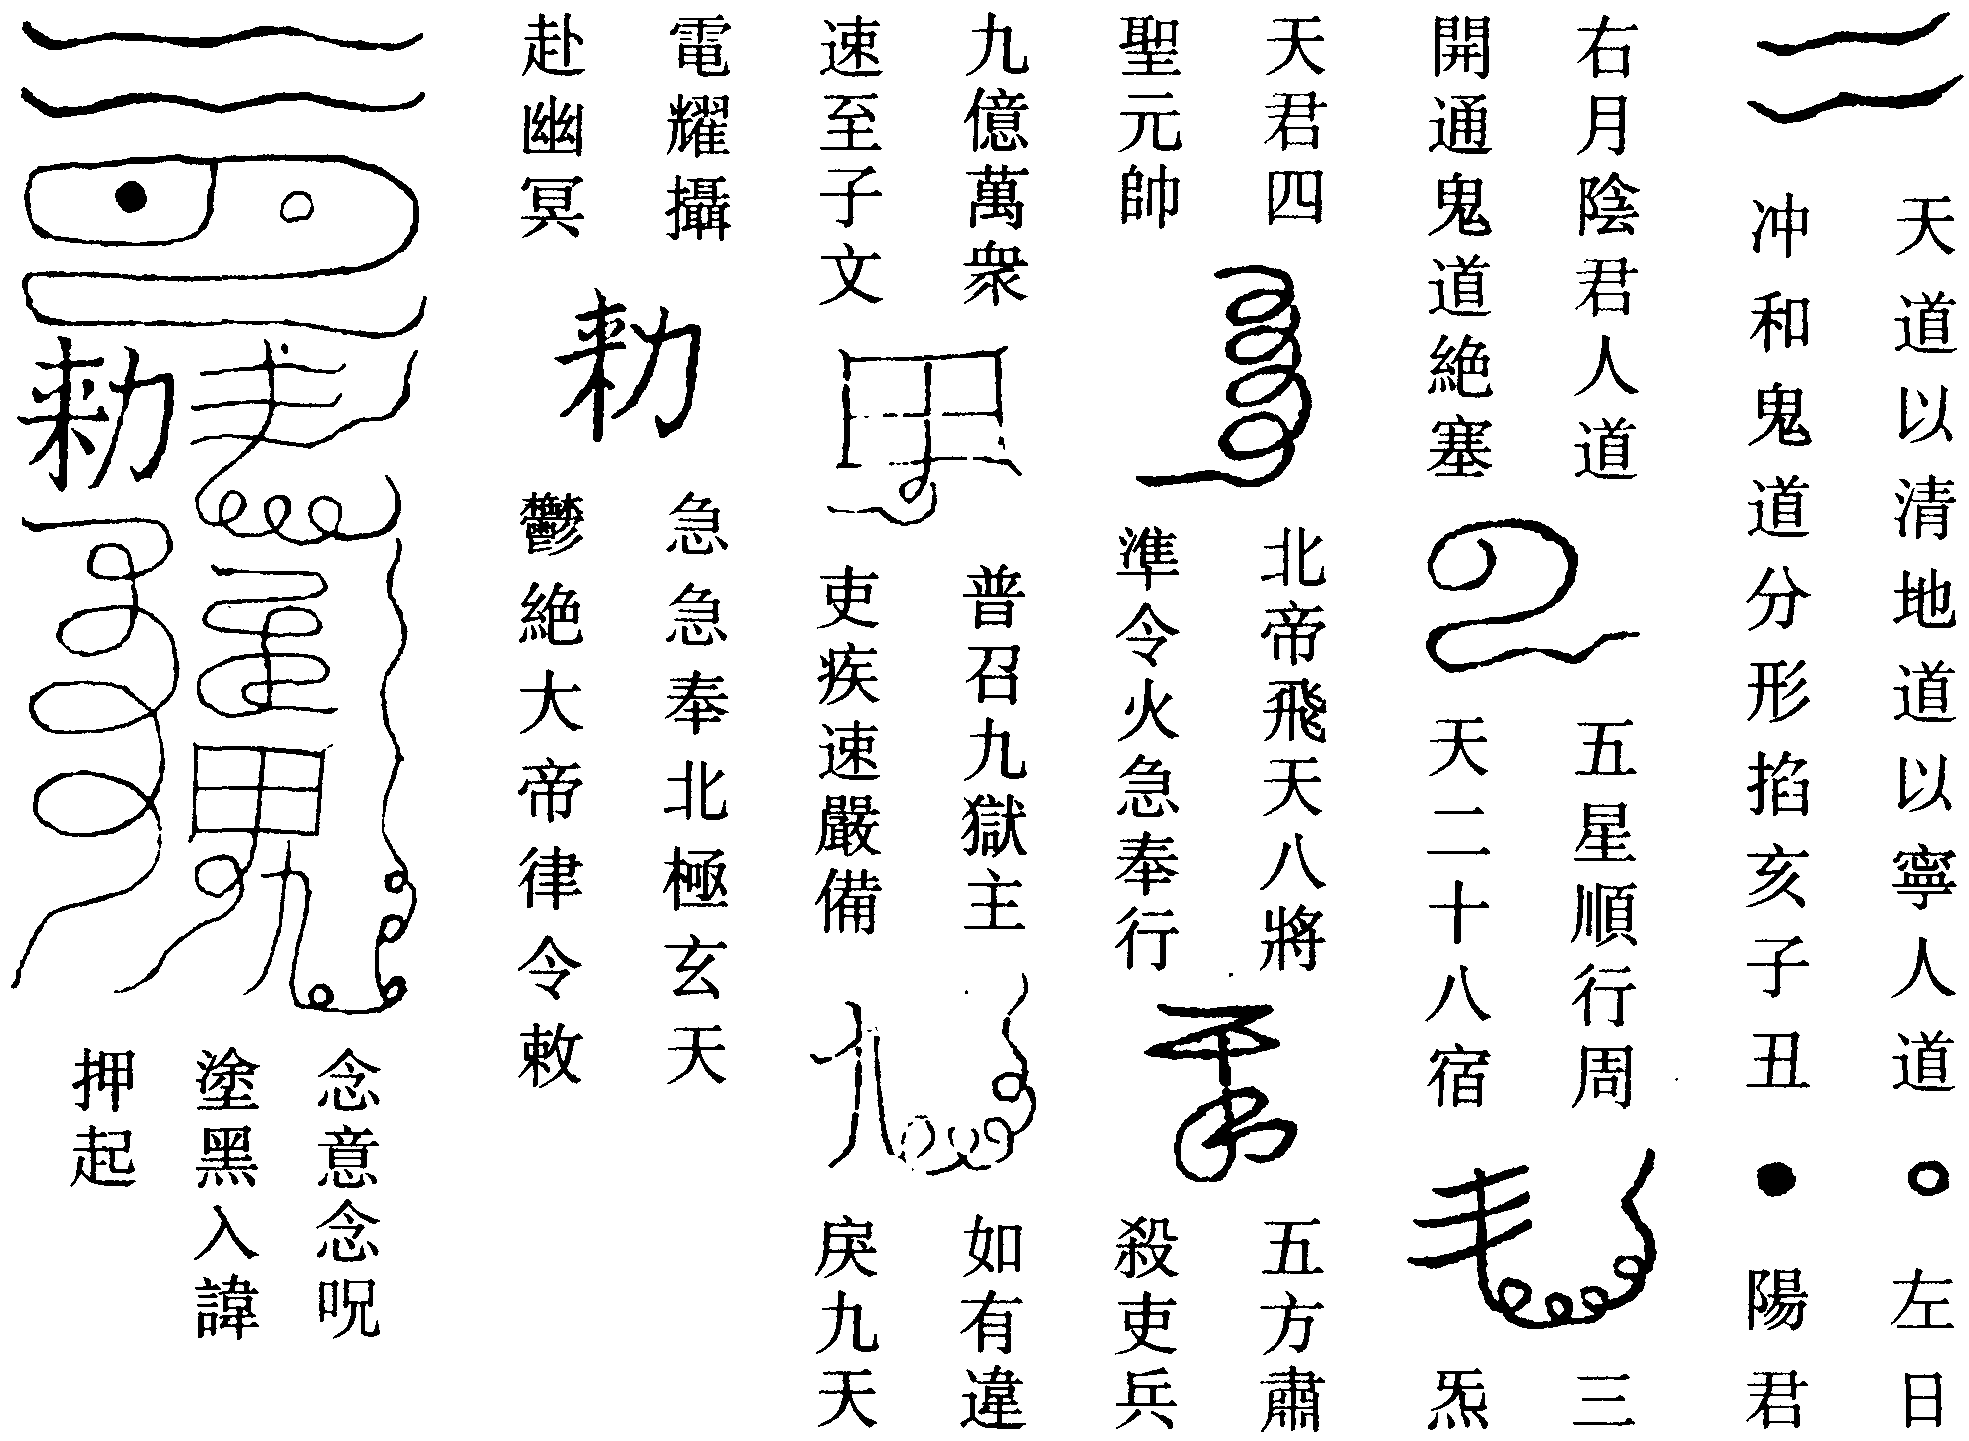 天道以清地道以寧人道
冲和鬼道分形掐亥子丑
左日
陽君
右月陰君人道
開通鬼道絶塞
五星順行周
天二十八宿
三
炁
天君四
聖元帥
北帝飛天八將
準令火急奉行
五方肅
殺吏兵
九億萬衆
速至子文
普召九獄主
吏疾速嚴備
如有違
戾九天
電耀攝
赴幽冥
勑
急急奉北極玄天
鬱絶大帝律令敕
勑
念意念呪
塗黑入諱
押起